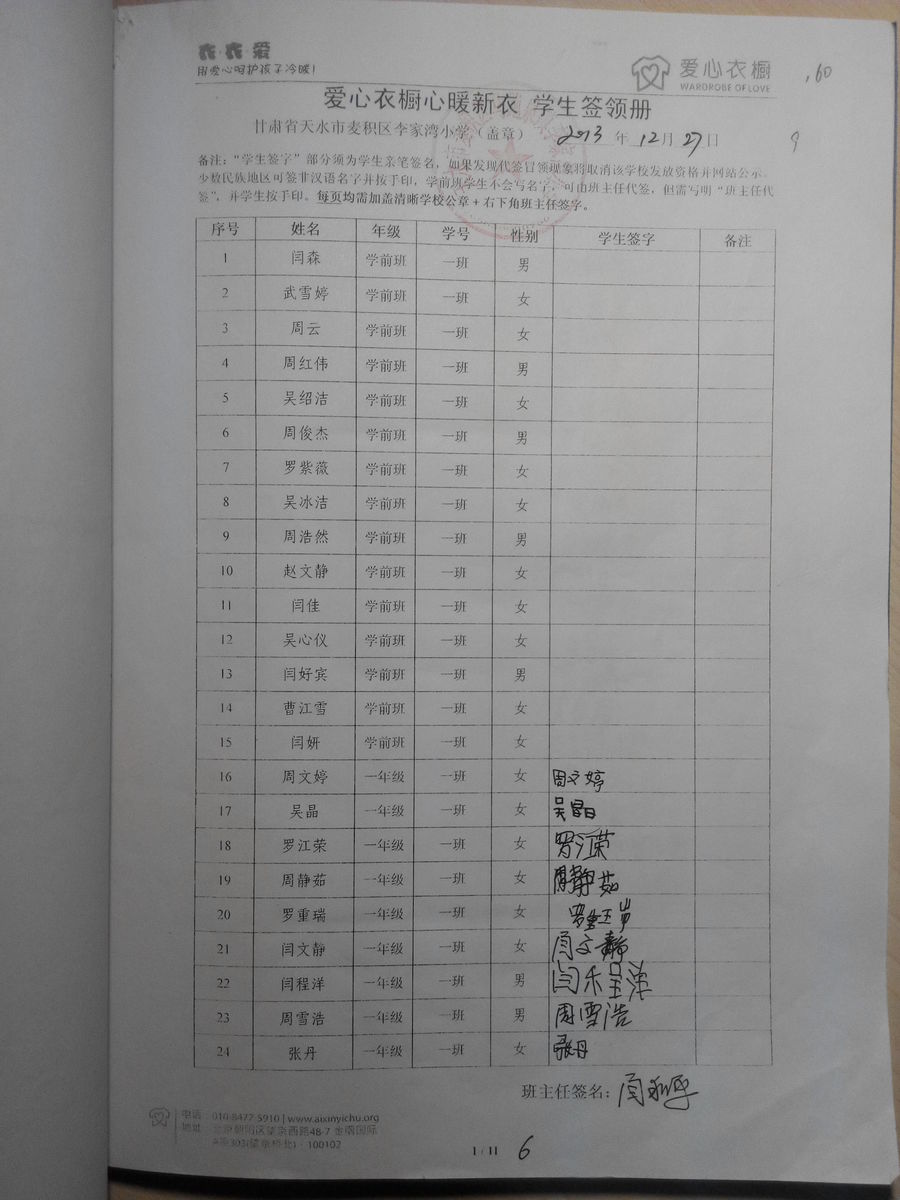 衣·衣·爱
用爱心呵护孩子冷暖!
爱心衣橱
WARDROBE OF LOVE
.60
爱心衣橱心暖新衣 学生签领册
甘肃省天水市麦积区李家湾小学（盖章） 2013 年 12 月 27 日
9
备注：“学生签字”部分须为学生亲笔签名，如果发现代签冒领现象将取消该学校发放资格并网站公示。
少数民族地区可签非汉语名字并按手印，学前班学生不会写名字，可由班主任代签，但需写明“班主任代
签”，并学生按手印。每页均需加盖清晰学校公章+右下角班主任签字。
序号 姓名 年级 学号 性别 学生签字 备注
1 闫森 学前班 一班 男
2 武雪婷 学前班 一班 女
3 周云 学前班 一班 女
4 周红伟 学前班 一班 男
5 吴绍洁 学前班 一班 女
6 周俊杰 学前班 一班 男
7 罗紫薇 学前班 一班 女
8 吴冰洁 学前班 一班 女
9 周浩然 学前班 一班 男
10 赵文静 学前班 一班 女
11 闫佳 学前班 一班 女
12 吴心仪 学前班 一班 女
13 闫好宾 学前班 一班 男
14 曹江雪 学前班 一班 女
15 闫妍 学前班 一班 女
16 周文婷 一年级 一班 女 周文婷
17 吴晶 一年级 一班 女 吴晶
18 罗江荣 一年级 一班 女 罗江荣
19 周静茹 一年级 一班 女 周静茹
20 罗重瑞 一年级 一班 女 罗重瑞
21 闫文静 一年级 一班 女 闫文静
22 闫程洋 一年级 一班 男 闫程洋
23 周雪浩 一年级 一班 男 周雪浩
24 张丹 一年级 一班 女 张丹
班主任签名：
电话 010-8477-5910 | www.aixinyichu.org
地址 北京朝阳区望京西路48-7 金隅国际
A座303(望京桥北)·100102
1 / 11 6